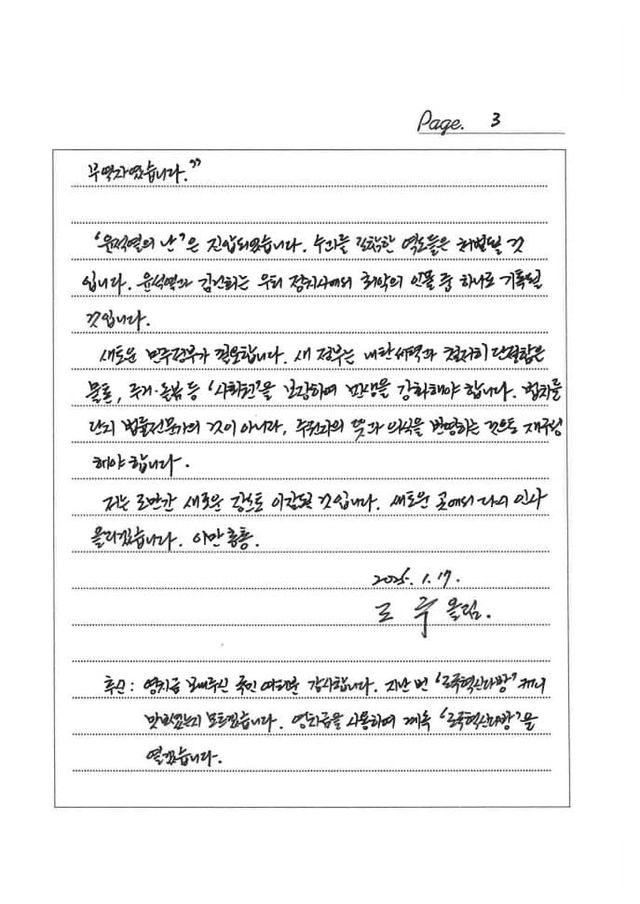 Page. 3
무뢰자였습니다."
'윤석열의 난'은 진압되었습니다. 수괴를 포함한 역도들은 처벌될 것
입니다. 윤석열과 김건희는 우리 정치사에서 최악의 인물 중 하나로 기록될
것입니다.
새로운 민주정부가 필요합니다. 새 정부는 내란세력과 철저히 단절함은
물론, 주거·돌봄 등 '사회권'을 보장하여 민생을 강화해야 합니다. 법치를
단지 법률전문가의 것이 아니라, 주권자의 뜻과 의식을 반영하는 것으로 재구성
해야 합니다.
저는 조만간 새로운 장소로 이감될 것입니다. 새로운 곳에서 다시 인사
올리겠습니다. 이만 총총.
2025. 1. 17.
조 국 올림.
추신: 영치금 보내주신 국민 여러분 감사합니다. 지난 번 '조국혁신다방' 커피
맛있었는지 모르겠습니다. 영치금을 사용하여 계속 '조국혁신다방'을
열겠습니다.